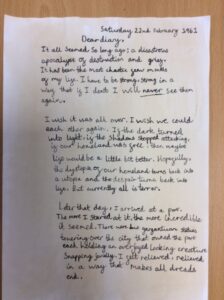 Saturday 22nd February 1961
Dear diary,
It all seemed so long ago; a disastrous
apocalypse of destruction and grey.
It has been the most chaotic year months
of my life. I have to be strong, strong in a
way that if I don't I will never see them
again.
I wish it was all over. I wish we could
each other again. If the dark turned
into light; if the shadows stopped attacking,
if our homeland was free, then maybe
life would be a little bit better. Hopefully,
the dystopia of our homeland turns back into
a utopia and the despair turns back into
life. But currently all is terror.
Later that day, I arrived at a port.
The more I stared at it, the more incredible
it seemed. There were two gargantuan statues
towering over the city that owned the port
each holding an overjoyed looking creature
snapping joyfully. I felt relieved, relieved
in a way that makes all dreads
end.